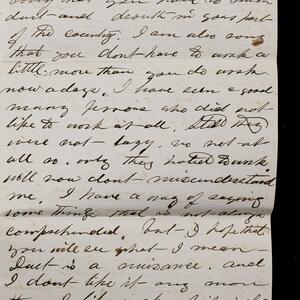 sorry that you have so much
dust and drouth in your part
of the country. I am also sorry
that you dont have to work a
little more than you do work
now a days. I have seen a good
many persons who did not
like to work at all. still they
were not lazy. no not at
all so. only they hated work.
will now dont misunderstand
me. I have a way of saying
some things that is not always
comprehended. but I hope that
you will see what I mean
Dust is a nuisance. and
I dont like it any more